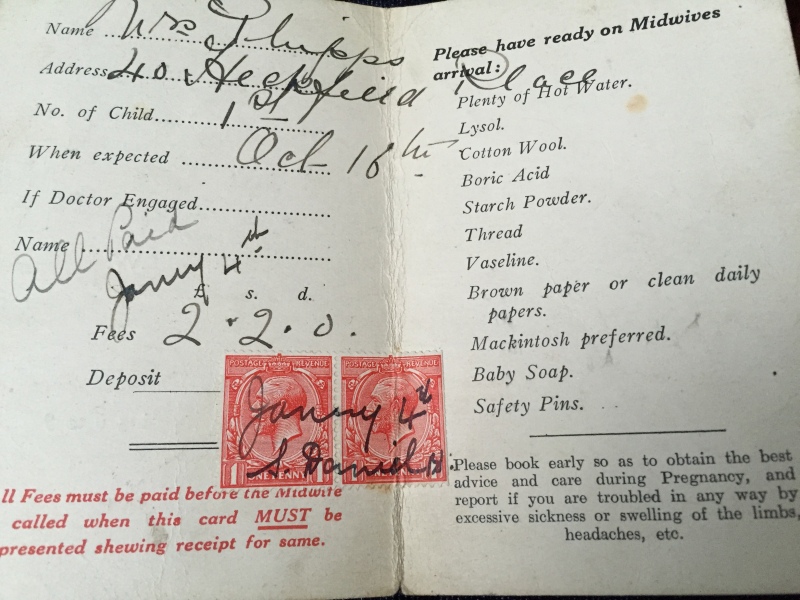 Name Mrs Phipps
Address 40. Heckfield Place
No. of Child 1st
When expected Oct 16th
If Doctor Engaged
Name
All Paid
Janry 4th
£ s. d.
Fees 2.2.0.
Deposit
POSTAGE REVENUE POSTAGE REVENUE
Janry 4th
S. Daniel
1 ONE PENNY 1
ll Fees must be paid before the Midwife
called when this card MUST be
presented shewing receipt for same.
Please have ready on Midwives
arrival:
Plenty of Hot Water.
Lysol.
Cotton Wool.
Boric Acid
Starch Powder.
Thread
Vaseline.
Brown paper or clean daily
papers.
Mackintosh preferred.
Baby Soap.
Safety Pins.
Please book early so as to obtain the best
advice and care during Pregnancy, and
report if you are troubled in any way by
excessive sickness or swelling of the limbs,
headaches, etc.